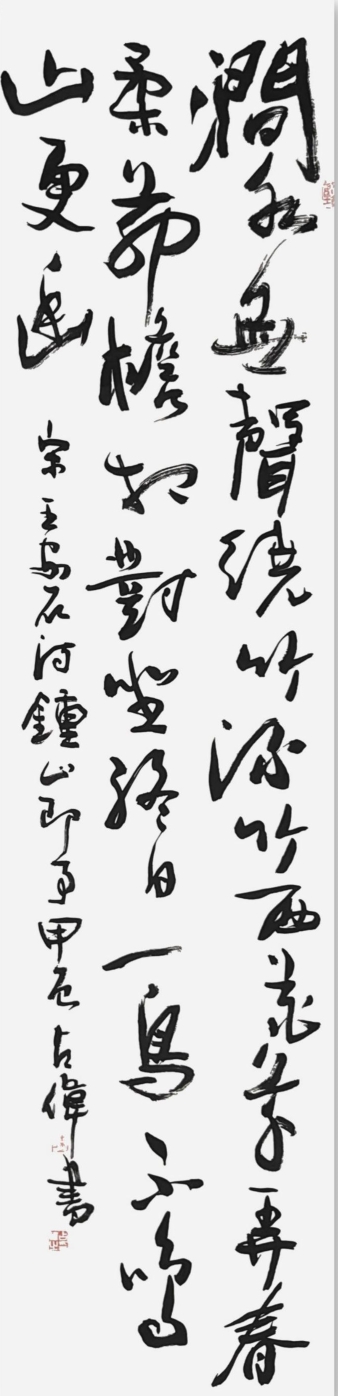 澗水無聲繞竹流竹西花草弄春
柔茅檐相對坐終日一鳥不鳴
山更幽
宋王安石詩鍾山即事甲辰占偉書